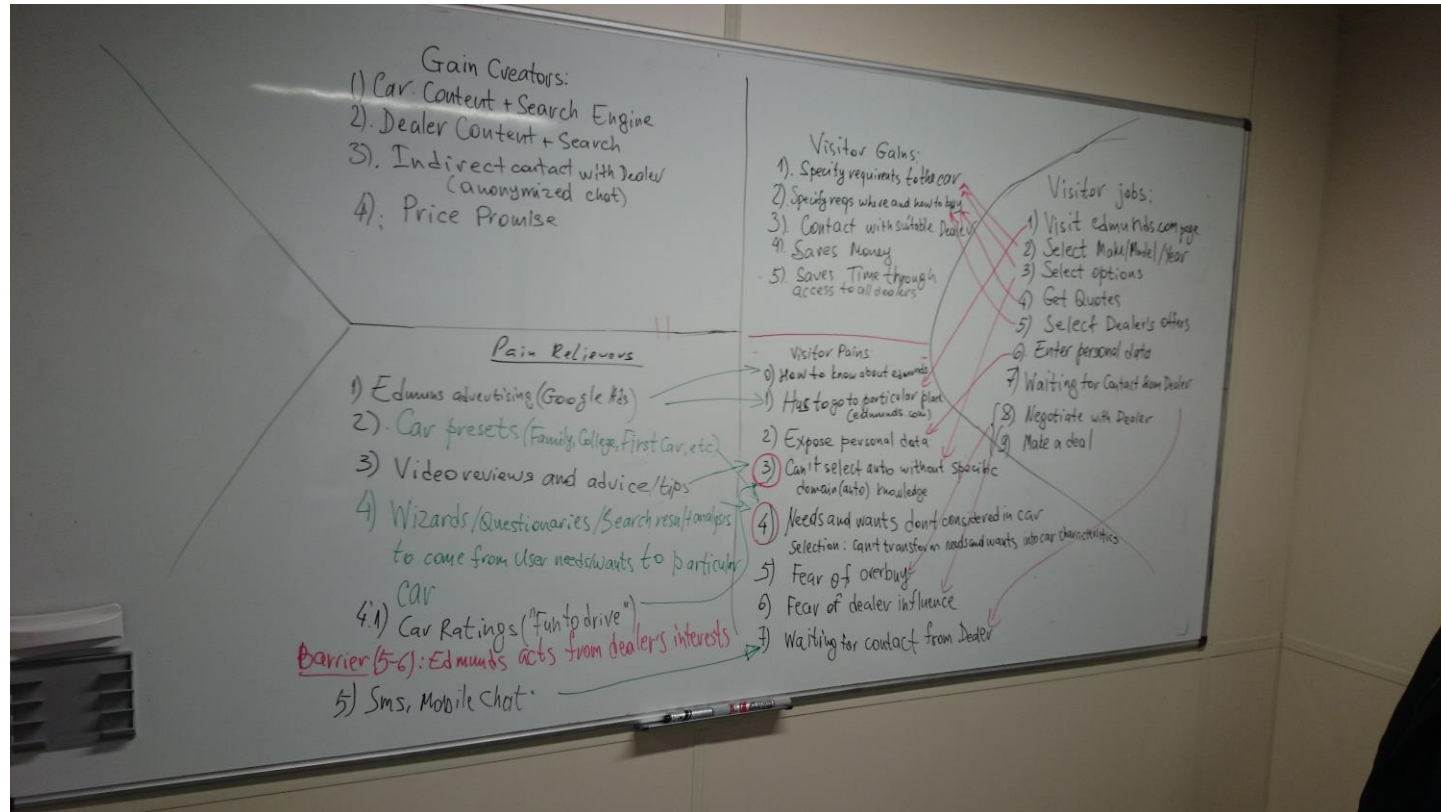 Gain Creators:
1) Car Content + Search Engine
2). Dealer Content + Search
3). Indirect contact with Dealer
(anonymized chat)
4). Price Promise
Pain Relievers
1) Edmuns advertising (Google Ads)
2). Car presets (Family, College, First Car, etc)
3) Video reviews and advice/tips
4) Wizards/Questionaries/Search result analysis
to come from User needs/wants to particular
car
4.1) Car Ratings ("Fun to drive")
Barrier (5-6): Edmunds acts from dealer's interests
5) Sms, Mobile chat.
Visitor Gains:
1). Specify requirents to the car
2). Specify reqs where and how to buy
3). Contact with suitable Dealer
4). Saves Money
5). Saves Time through
access to all dealers
Visitor Pains:
0) How to know about edmunds
1) Has to go to particular place
(edmunds.com)
2) Expose personal data
3) Can't select auto without specific
domain (auto) knowledge
4) Needs and wants don't considered in car
selection: can't transform needs and wants into car characteristics
5) Fear of overbuy
6) Fear of dealer influence
7) Waiting for contact from Dealer
Visitor jobs:
1) Visit edmunds.com page
2) Select Make/Model/Year
3) Select options
4) Get Quotes
5) Select Dealer's offers
6). Enter personal data
7) Waiting for Contact from Dealer
8) Negotiate with Dealer
9) Make a deal